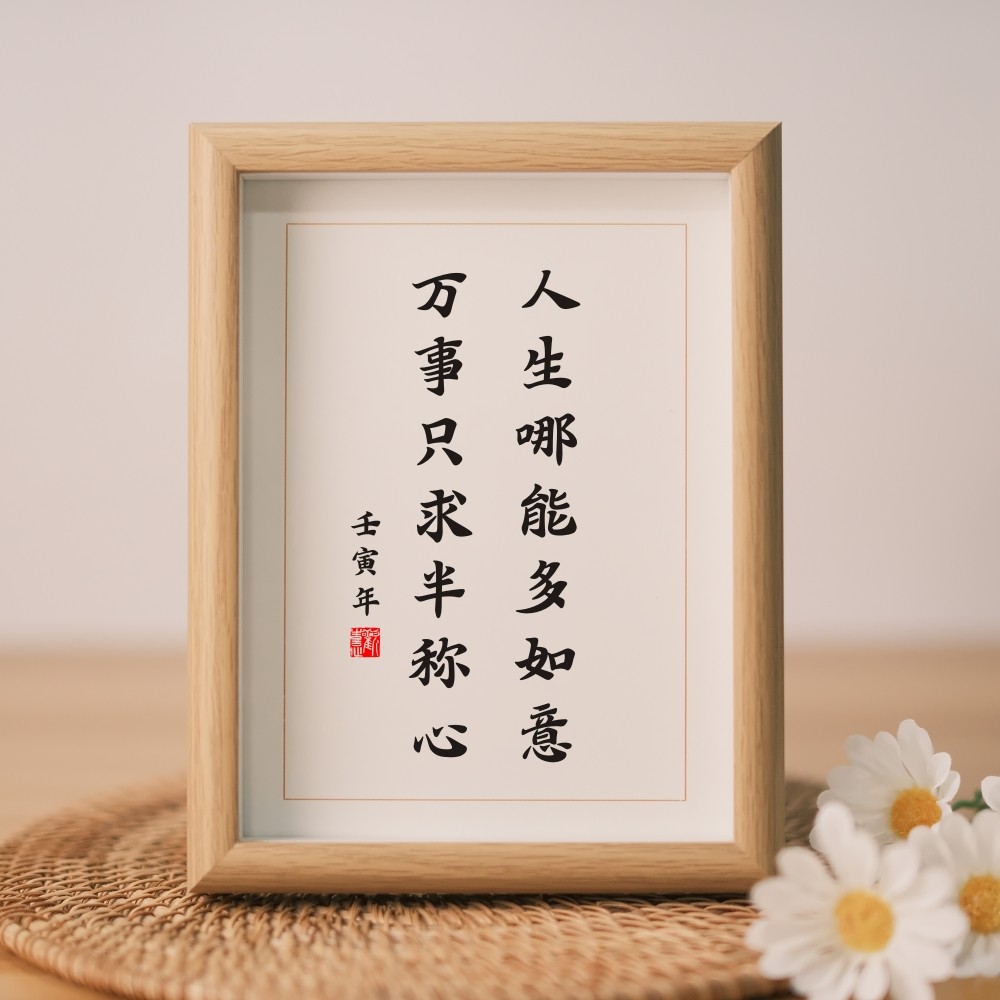 人生哪能多如意
万事只求半称心
壬寅年